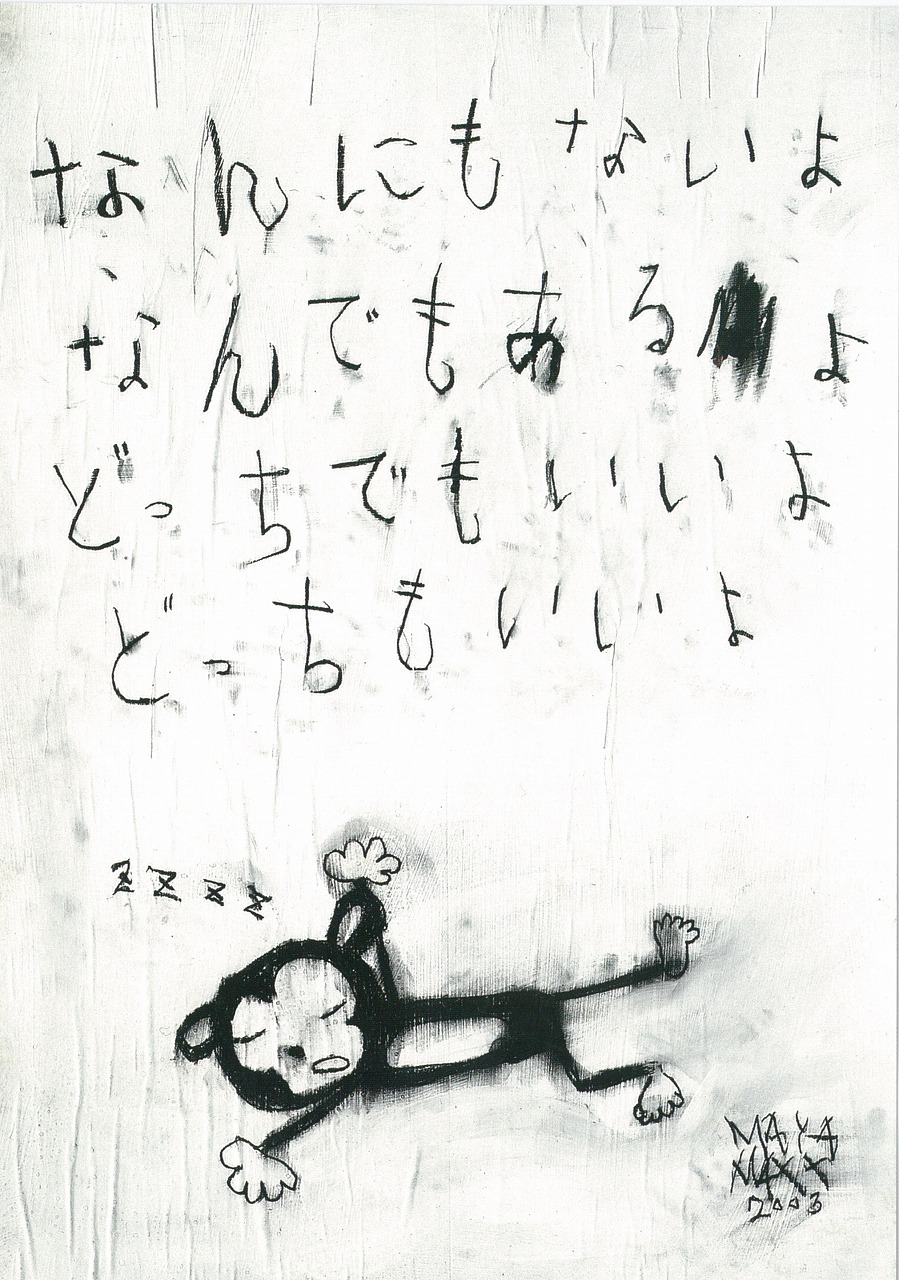 なんにもないよ
なんでもあるよ
どっちでもいいよ
どっちもいいよ
ZZZZ
MAYA
MAXX
2003